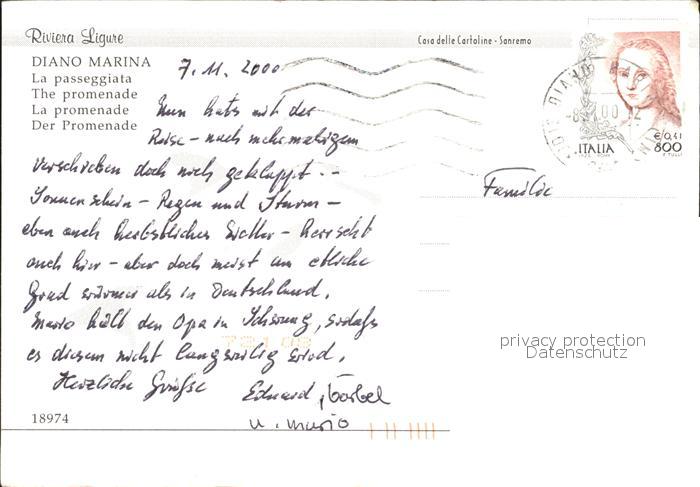 Riviera Ligure
Casa delle Cartoline - Sanremo
DIANO MARINA
La passeggiata
The promenade
La promenade
Der Promenade
7.11.2000
Nun hats mit der
Reise - nach mehrmaligem
Verschieben doch noch geklappt --
Sonnenschein - Regen und Sturm -
eben auch herbstliches Wetter - herrscht
auch hier - aber doch meist um etliche
Grad wärmer als in Deutschland.
Mario hält den Opa in Schwung, sodaß
es diesem nicht langweilig wird.
Herzliche Grüße Eduard, Bärbel
u. Mario
18974
Familie
€ 0,41
ITALIA 800
privacy protection
Datenschutz